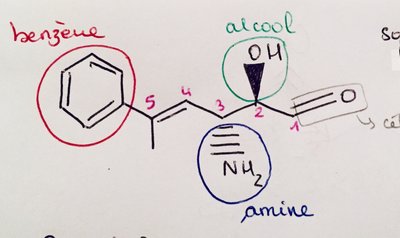 benzène
alcool
OH
5
4
3
2
1
O
NH2
amine